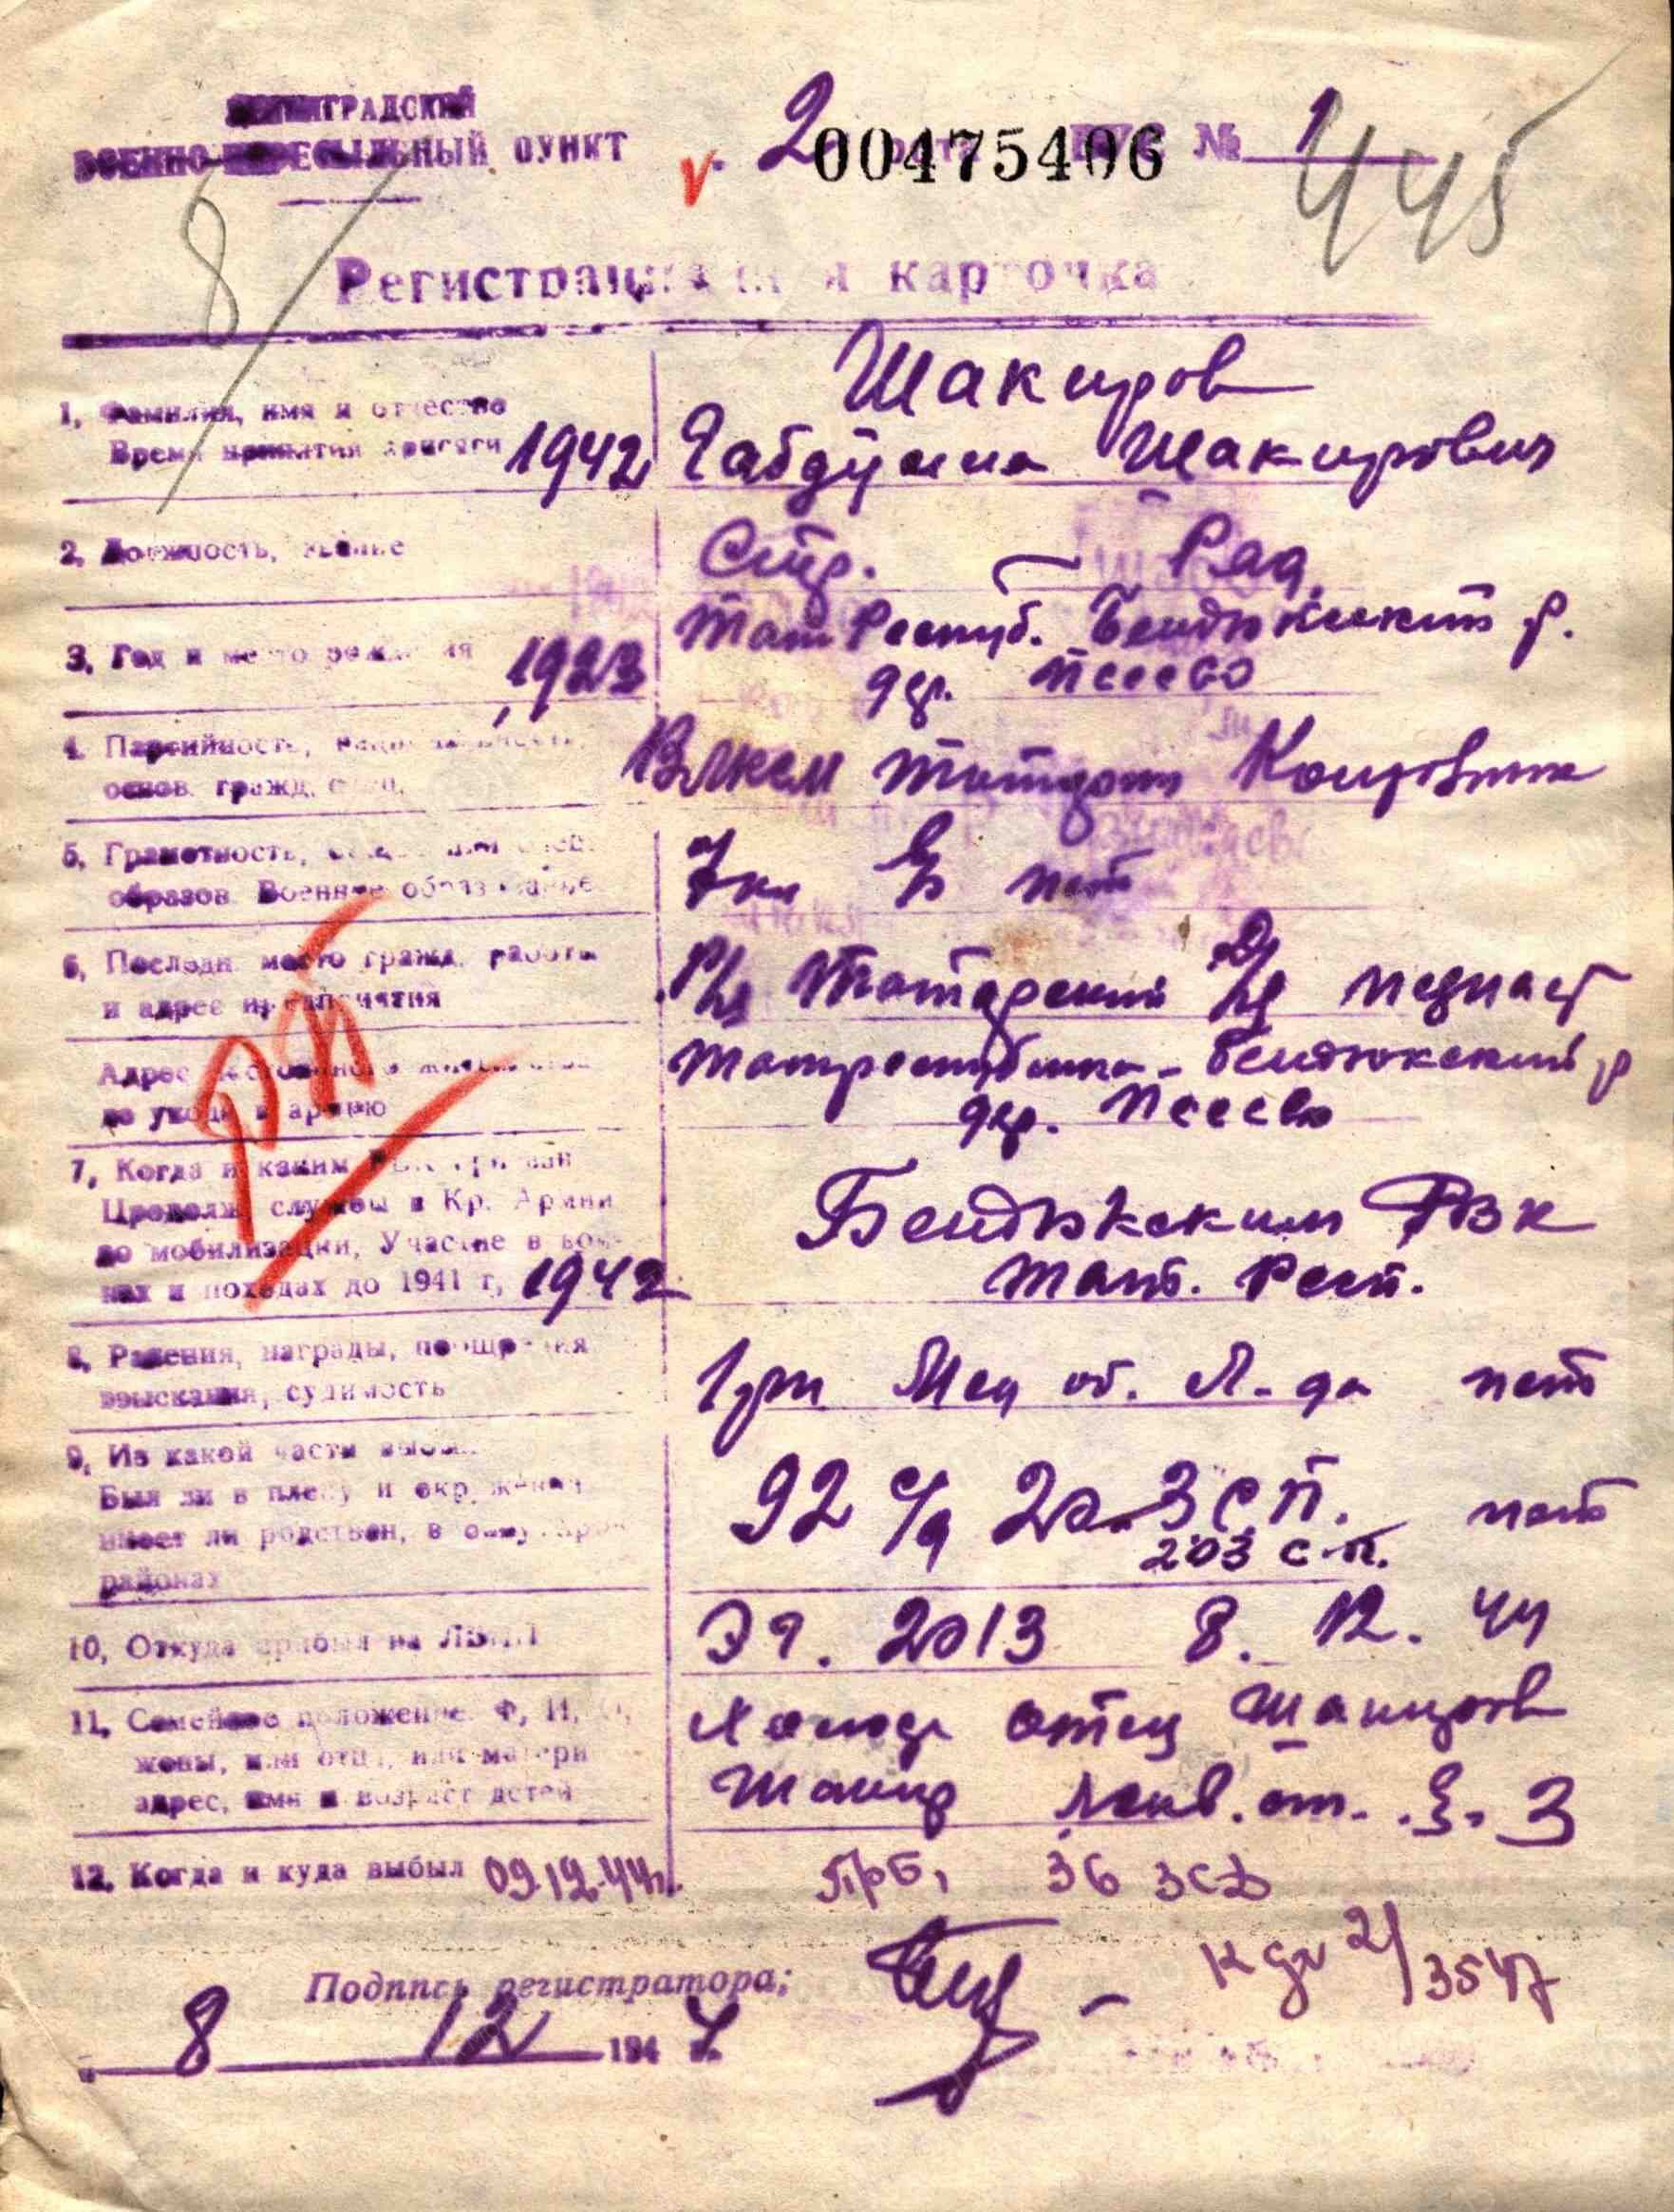 ЛЕНИНГРАДСКИЙ
ВОЕННО-ПЕРЕСЫЛЬНЫЙ ПУНКТ
v. 2 рота ВУС № 1
00475406
445
8/
Регистрационная карточка
Шакиров
1, Фамилия, имя и отчество
Время принятия присяги 1942 Габдулла Шакирович
2, Должность, звание Стр. — Ряд.
3, Год и место рождения 1923 Тат Респуб. Бондюжский р.
дер. Псеево
4. Партийность, национальность, Влксм татарин
основ. гражд. спец.
5, Грамотность, общее или спец. 7 кл нет
образов. Военное образование
6, Последн. место гражд. работы Татарский
и адрес предприятия
Адрес постоянного жительства Татреспублика - Бондюжский р
до ухода в армию дер. Псеево
РЯ
7, Когда и каким РВК призван
Продолж. службы в Кр. Армии Бондюжским РВК
до мобилизации, Участие в вой-
нах и походах до 1941 г, 1942 Тат. Респ.
8, Ранения, награды, поощрения 1 Мед об. Л-да нет
взыскания, судимость
9, Из какой части выбыл
Был ли в плену и окружении 92 с/д 203 с п. нет
имеет ли родствен, в оккупиров 203 с.п.
районах
10, Откуда прибыл на ЛВПП ЭГ. 2013 8. 12. 44
11, Семейное положение Ф, И, О, Холост отец Шакиров
жены, или отца, или матери Шакир от. п. 3
адрес, имя и возраст детей
12, Когда и куда выбыл 09.12.44г. 36 зсд
2/3547
Подпись регистратора;
8 12 1944